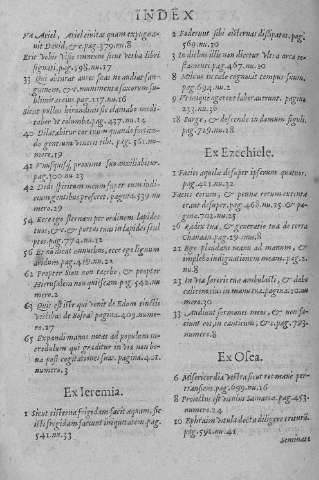 INDEX
Væ Ariel, Ariel civitas quam expugna-
vit David, &c. pag.379.nu.8
Erit vobis visio omnium sicut verba libri
signati. pag.398.nu.17
33 Qui obturat aures suas ne audiat san-
guinem, &c. munimenta saxorum su-
blimitas eius. pag.117.nu.16
Sicut pullus hirundinis sic clamabo medi-
tabor ut columba. pag.437.nu.14
40
mero,19
42 pag.100.nu.23
42 Dedi spiritum meum super eum iudi-
cium gentibus proferet, pagina.539.nu-
mero.29
54 Ecce ego sternam per ordinem lapides
tuos, & c. & portas tuas in lapides scul
ptos. pag.774.nu.12
56 ligni
aridum pag.419.nu.22
62 Propter Sion non tacebo, & propter
Hierusalem non quiescam pag.542.nu
mero.2
63 Quis est iste qui venit de Edom tinctis
vestibus de Bosra? pagina.409.nume-
ro.27
65 Expandi manus meas ad populum in-
credulum qui graditur in via non bo-
na post cogitationes suas. pagina.401.
numero.3
Ex Ieremia.
1 Sicut cisterna frigidam facit aquam, sic
isti frigidam faciunt iniquitatem.pag.
541.nu.33
2 Foderunt sibi cisternas dissipatas. pag.
569.nu.30
3 In diebus illis non dicetur ultra arca te-
stamenti.pag.467.nu.30
8 Milvus in cælo cognovit tempus suum.
pag.694.nu.2
9 ut inique agerent laboraverunt. pagina
233.nu.36
18 Surge, & descende in domum figuli.
pag.719.nu.28
Ex Ezechiele.
1 Facies aquilæ desuper ipsorum quatuor.
pag.421.nu.32
Facies eorum, & pennæ eorum extentæ
erant desuper.pag.468.nu.25. & pa-
gina.702.nu.25
16 Radix tua, & generatio tua de terra
Chanaan.pag.29.nu.8
21 Ego plaudam manu ad manum, &
implebo indignationem meam. pag.2.
nu.8
23 In via sororis tuæ ambulasti, & dabo
calicem eius in manu tua.pagina.20.nu
mero.30
33 Audiunt sermones meos, & non fa-
ciunt eos,in canticum, &c.pag.703.
numero.8
Ex Osea.
6 Misericordia vestra sicut ros mane per-
transiens.pag.699.nu.16
8 Proiectus est vitulus Samaria.pag.453.
numero.24
10 Ephraim vitula docta diligere trituram.
pag.592.nu.41
Seminate